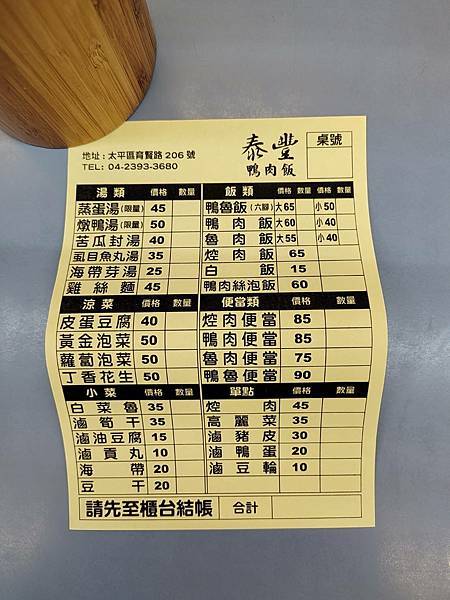 地址 : 太平區育賢路 206 號
TEL: 04-2393-3680
泰豐
鴨肉飯
桌號
湯類 價格 數量
蒸蛋湯(限量) 45
燉鴨湯(限量) 50
苦瓜封湯 40
虱目魚丸湯 35
海帶芽湯 25
雞絲麵 45
飯類 價格 數量 價格 數量
鴨魯飯(六腳) 大65 小50
鴨肉飯 大60 小40
魯肉飯 大55 小40
焢肉飯 65
白飯 15
鴨肉絲泡飯 60
涼菜 價格 數量
皮蛋豆腐 40
黃金泡菜 50
蘿蔔泡菜 50
丁香花生 50
便當類 價格 數量
焢肉便當 85
鴨肉便當 85
魯肉便當 75
鴨魯便當 90
小菜 價格 數量
白菜魯 35
滷筍干 35
滷油豆腐 15
滷貢丸 10
海帶 20
豆干 20
單點 價格 數量
焢肉 45
高麗菜 35
滷豬皮 30
滷鴨蛋 20
滷豆輪 10
請先至櫃台結帳 合計